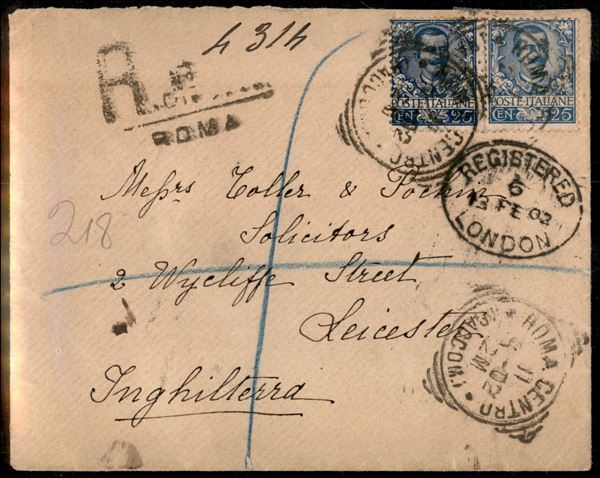 4314
R
ROMA
POSTE·ITALIANE
CEN 25
POSTE·ITALIANE
CEN 25
CENTRO
REGISTERED
6
13 FE 02
LONDON
Messrs Toller &
Solicitors
218
2 Wycliffe Street
Leicester
Inghilterra
ROMA CENTRO
11